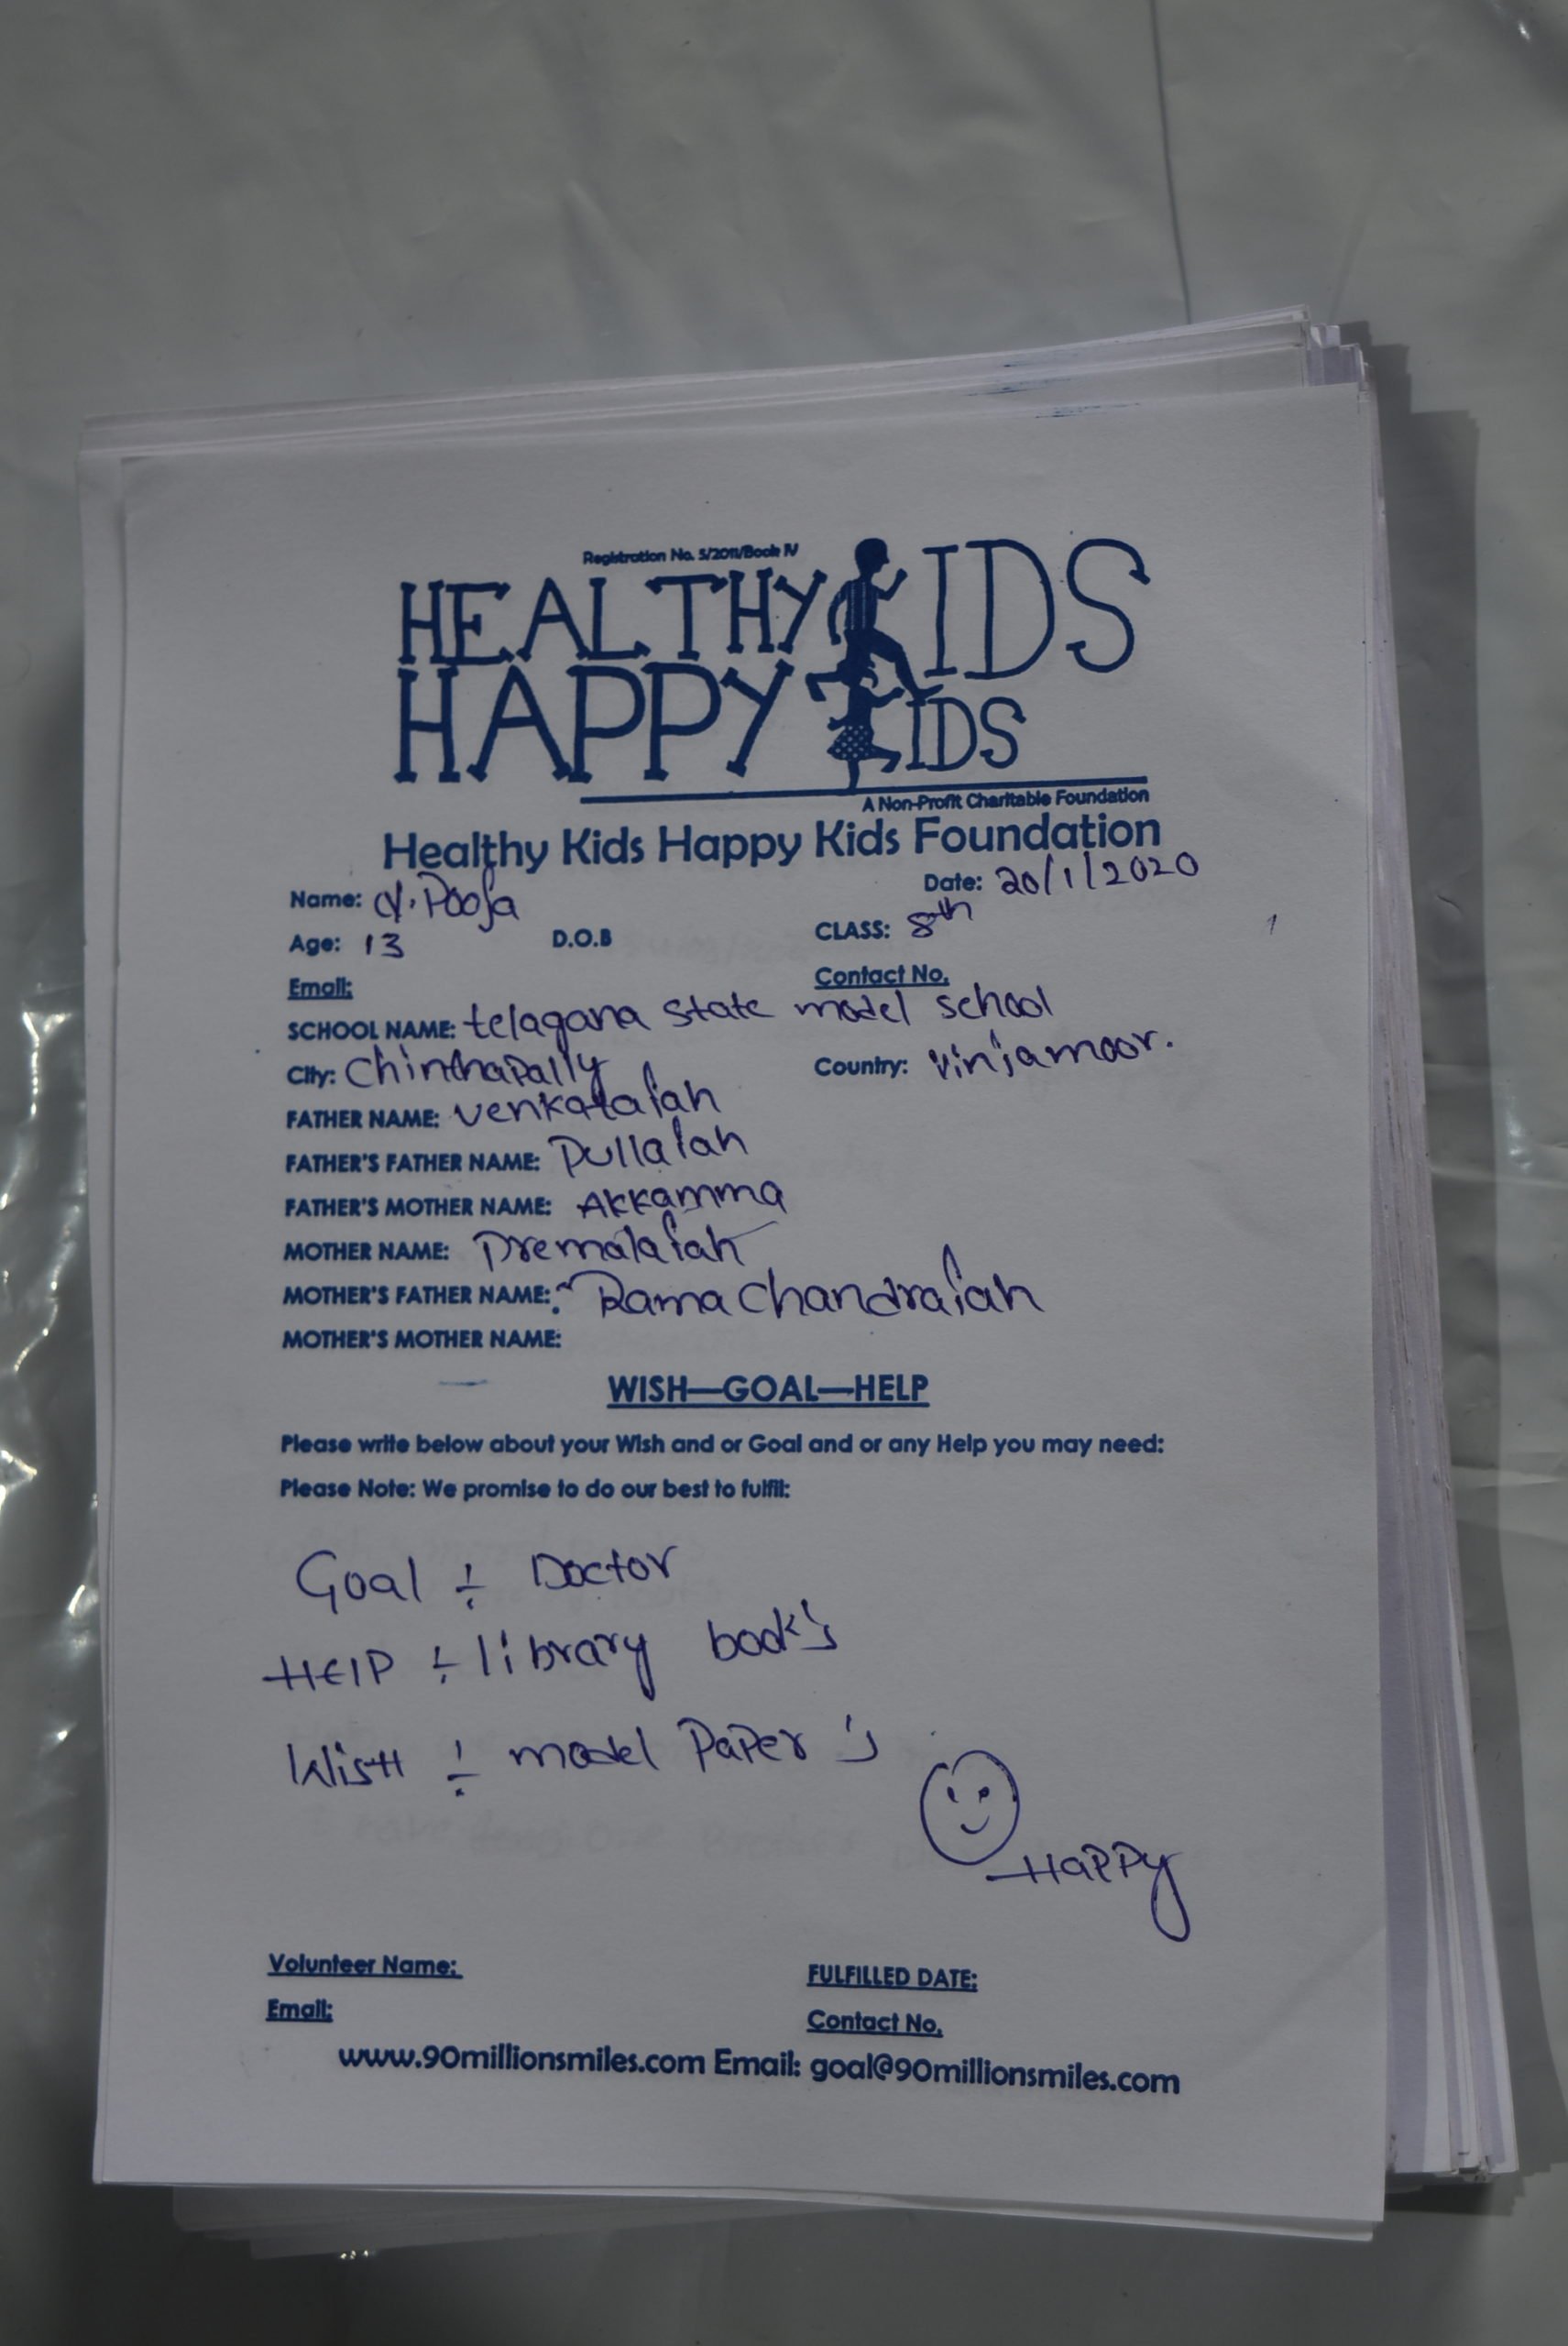 Registration No. 5/2011/Book IV
HEALTHY KIDS
HAPPY KIDS
A Non-Profit Charitable Foundation
Healthy Kids Happy Kids Foundation
Name: y. Pooja Date: 20/1/2020
Age: 13 D.O.B CLASS: 8th
Email: Contact No.
SCHOOL NAME: telagana state model school
City: Chinthapally Country: vinjamoor.
FATHER NAME: venkataiah
FATHER'S FATHER NAME: Pullaiah
FATHER'S MOTHER NAME: AKKamma
MOTHER NAME: Premalaiah
MOTHER'S FATHER NAME: Rama chandraiah
MOTHER'S MOTHER NAME:
WISH—GOAL—HELP
Please write below about your Wish and or Goal and or any Help you may need:
Please Note: We promise to do our best to fulfil:
Goal ÷ Doctor
HElP ÷ library book's
WisH ÷ model PaPer's
HaPPy
Volunteer Name: FULFILLED DATE:
Email: Contact No.
www.90millionsmiles.com Email: goal@90millionsmiles.com